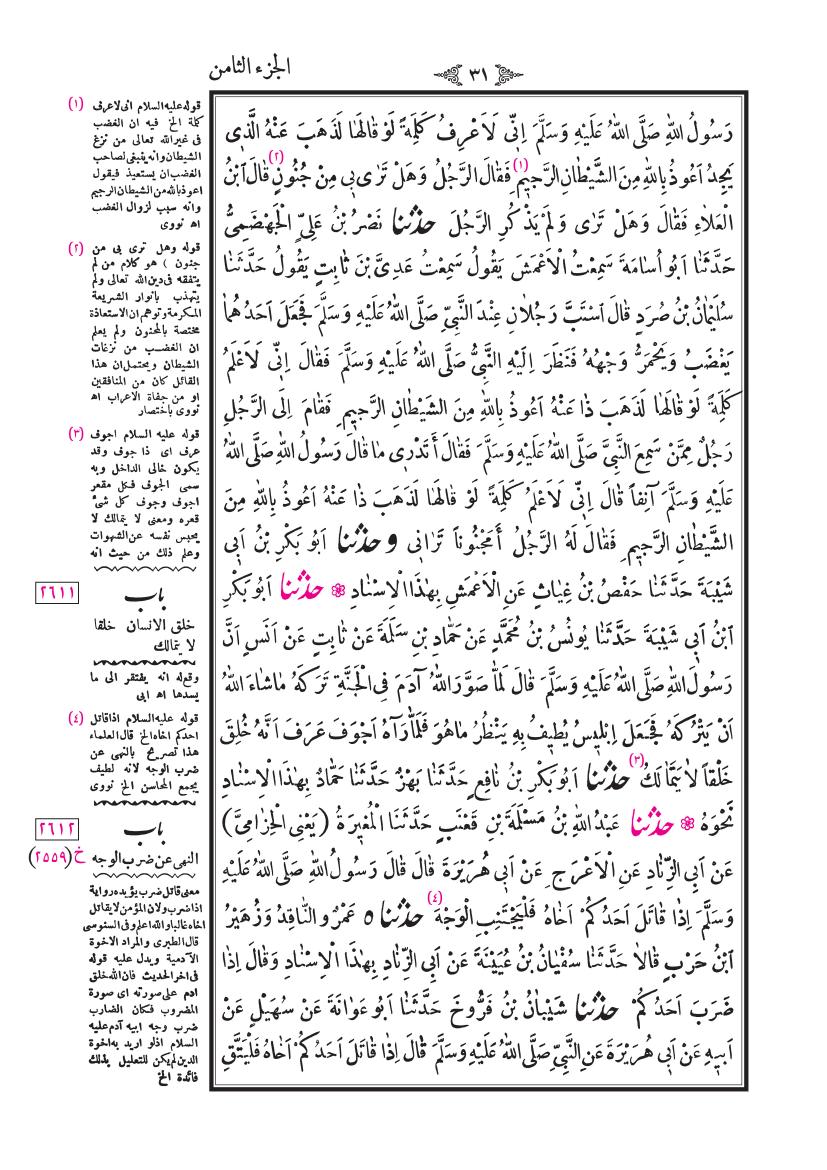 الجزء الثامن
٣١
رَسُولُ اللهِ صَلَّى اللهُ عَلَيْهِ وَسَلَّمَ اِنِّى لَاَعْرِفُ كَلِمَةً لَوْ قَالَهَا لَذَهَبَ عَنْهُ الَّذِى
يَجِدُ اَعُوذُ بِاللهِ مِنَ الشَّيْطَانِ الرَّجِيمِ (١) فَقَالَ الرَّجُلُ وَهَلْ تَرٰى بِى مِنْ جُنُونٍ (٢) قَالَ ابْنُ
الْعَلَاءِ فَقَالَ وَهَلْ تَرٰى وَلَمْ يَذْكُرِ الرَّجُلَ حدثنا نَصْرُ بْنُ عَلِىٍّ الْجَهْضَمِىُّ
حَدَّثَنَا اَبُو اُسَامَةَ سَمِعْتُ الْاَعْمَشَ يَقُولُ سَمِعْتُ عَدِىَّ بْنَ ثَابِتٍ يَقُولُ حَدَّثَنَا
سُلَيْمَانُ بْنُ صُرَدٍ قَالَ اسْتَبَّ رَجُلَانِ عِنْدَ النَّبِىِّ صَلَّى اللهُ عَلَيْهِ وَسَلَّمَ فَجَعَلَ اَحَدُهُمَا
يَغْضَبُ وَيَحْمَرُّ وَجْهُهُ فَنَظَرَ اِلَيْهِ النَّبِىُّ صَلَّى اللهُ عَلَيْهِ وَسَلَّمَ فَقَالَ اِنِّى لَاَعْلَمُ
كَلِمَةً لَوْ قَالَهَا لَذَهَبَ ذَا عَنْهُ اَعُوذُ بِاللهِ مِنَ الشَّيْطَانِ الرَّجِيمِ فَقَامَ اِلَى الرَّجُلِ
رَجُلٌ مِمَّنْ سَمِعَ النَّبِىَّ صَلَّى اللهُ عَلَيْهِ وَسَلَّمَ فَقَالَ أَتَدْرِى مَا قَالَ رَسُولُ اللهِ صَلَّى اللهُ
عَلَيْهِ وَسَلَّمَ آنِفاً قَالَ اِنِّى لَاَعْلَمُ كَلِمَةً لَوْ قَالَهَا لَذَهَبَ ذَا عَنْهُ اَعُوذُ بِاللهِ مِنَ
الشَّيْطَانِ الرَّجِيمِ فَقَالَ لَهُ الرَّجُلُ أَمَجْنُوناً تَرَانِى وحدثنا اَبُو بَكْرِ بْنُ اَبِى
شَيْبَةَ حَدَّثَنَا حَفْصُ بْنُ غِيَاثٍ عَنِ الْاَعْمَشِ بِهٰذَا الْاِسْنَادِ ❁ حدثنا اَبُو بَكْرِ
ابْنُ اَبِى شَيْبَةَ حَدَّثَنَا يُونُسُ بْنُ مُحَمَّدٍ عَنْ حَمَّادِ بْنِ سَلَمَةَ عَنْ ثَابِتٍ عَنْ اَنَسٍ اَنَّ
رَسُولَ اللهِ صَلَّى اللهُ عَلَيْهِ وَسَلَّمَ قَالَ لَمَّا صَوَّرَ اللهُ آدَمَ فِى الْجَنَّةِ تَرَكَهُ مَا شَاءَ اللهُ
اَنْ يَتْرُكَهُ فَجَعَلَ اِبْلِيسُ يُطِيفُ بِهِ يَنْظُرُ مَا هُوَ فَلَمَّا رَآهُ اَجْوَفَ عَرَفَ اَنَّهُ خُلِقَ
خَلْقاً لَا يَتَمَالَكُ (٣) حدثنا اَبُو بَكْرِ بْنُ نَافِعٍ حَدَّثَنَا بَهْزٌ حَدَّثَنَا حَمَّادٌ بِهٰذَا الْاِسْنَادِ
نَحْوَهُ ❁ حدثنا عَبْدُ اللهِ بْنُ مَسْلَمَةَ بْنِ قَعْنَبٍ حَدَّثَنَا الْمُغِيرَةُ (يَعْنِى الْحِزَامِىَّ)
عَنْ اَبِى الزِّنَادِ عَنِ الْاَعْرَجِ عَنْ اَبِى هُرَيْرَةَ قَالَ قَالَ رَسُولُ اللهِ صَلَّى اللهُ عَلَيْهِ
وَسَلَّمَ اِذَا قَاتَلَ اَحَدُكُمْ اَخَاهُ فَلْيَجْتَنِبِ الْوَجْهَ (٤) حدثنا ه عَمْرٌو النَّاقِدُ وَزُهَيْرُ
ابْنُ حَرْبٍ قَالَا حَدَّثَنَا سُفْيَانُ بْنُ عُيَيْنَةَ عَنْ اَبِى الزِّنَادِ بِهٰذَا الْاِسْنَادِ وَقَالَ اِذَا
ضَرَبَ اَحَدُكُمْ حدثنا شَيْبَانُ بْنُ فَرُّوخَ حَدَّثَنَا اَبُو عَوَانَةَ عَنْ سُهَيْلٍ عَنْ
اَبِيهِ عَنْ اَبِى هُرَيْرَةَ عَنِ النَّبِىِّ صَلَّى اللهُ عَلَيْهِ وَسَلَّمَ قَالَ اِذَا قَاتَلَ اَحَدُكُمْ اَخَاهُ فَلْيَتَّقِ
(١) قوله عليه السلام انى لاعرف
كلمة الخ فيه ان الغضب
فى غير الله تعالى من نزغ
الشيطان وانه ينبغى لصاحب
الغضب ان يستعيذ فيقول
اعوذ بالله من الشيطان الرجيم
وانه سبب لزوال الغضب
اه نووى
(٢) قوله وهل ترى بى من
جنون ) هو كلام من لم
يتفقه فى دين الله تعالى ولم
يتهذب بانوار الشريعة
المكرمة وتوهم ان الاستعاذة
مختصة بالمجنون ولم يعلم
ان الغضب من نزغات
الشيطان ويحتمل ان هذا
القائل كان من المنافقين
او من جفاة الاعراب اه
نووى باختصار
(٣) قوله عليه السلام اجوف
عرف اى ذا جوف وقد
يكون خالى الداخل وبه
سمى الجوف فكل مقعر
اجوف وجوف كل شئ
قعره ومعنى لا يتمالك لا
يحبس نفسه عن الشهوات
وعلم ذلك من حيث انه
٢٦١١ باب
خلق الانسان خلقا
لا يتمالك
وقع له انه يفتقر الى ما
يسدها اه ابى
(٤) قوله عليه السلام اذا قاتل
احدكم اخاه الخ قال العلماء
هذا تصريح بالنهى عن
ضرب الوجه لانه لطيف
يجمع المحاسن الخ نووى
٢٦١٢ باب
النهى عن ضرب الوجه
خ (٢٥٥٩)
معنى قاتل ضرب يؤيده رواية
اذا ضرب ولان المؤمن لا يقاتل
اخاه غالبا والله اعلم وفى السنوسى
قال الطبرى والمراد الاخوة
الآدمية ويدل عليه قوله
فى اخر الحديث فان الله خلق
ادم على صورته اى صورة
المضروب فكان الضارب
ضرب وجه ابيه آدم عليه
السلام اذ لو اريد به اخوة
الدين لم يكن للتعليل بذلك
فائدة الخ